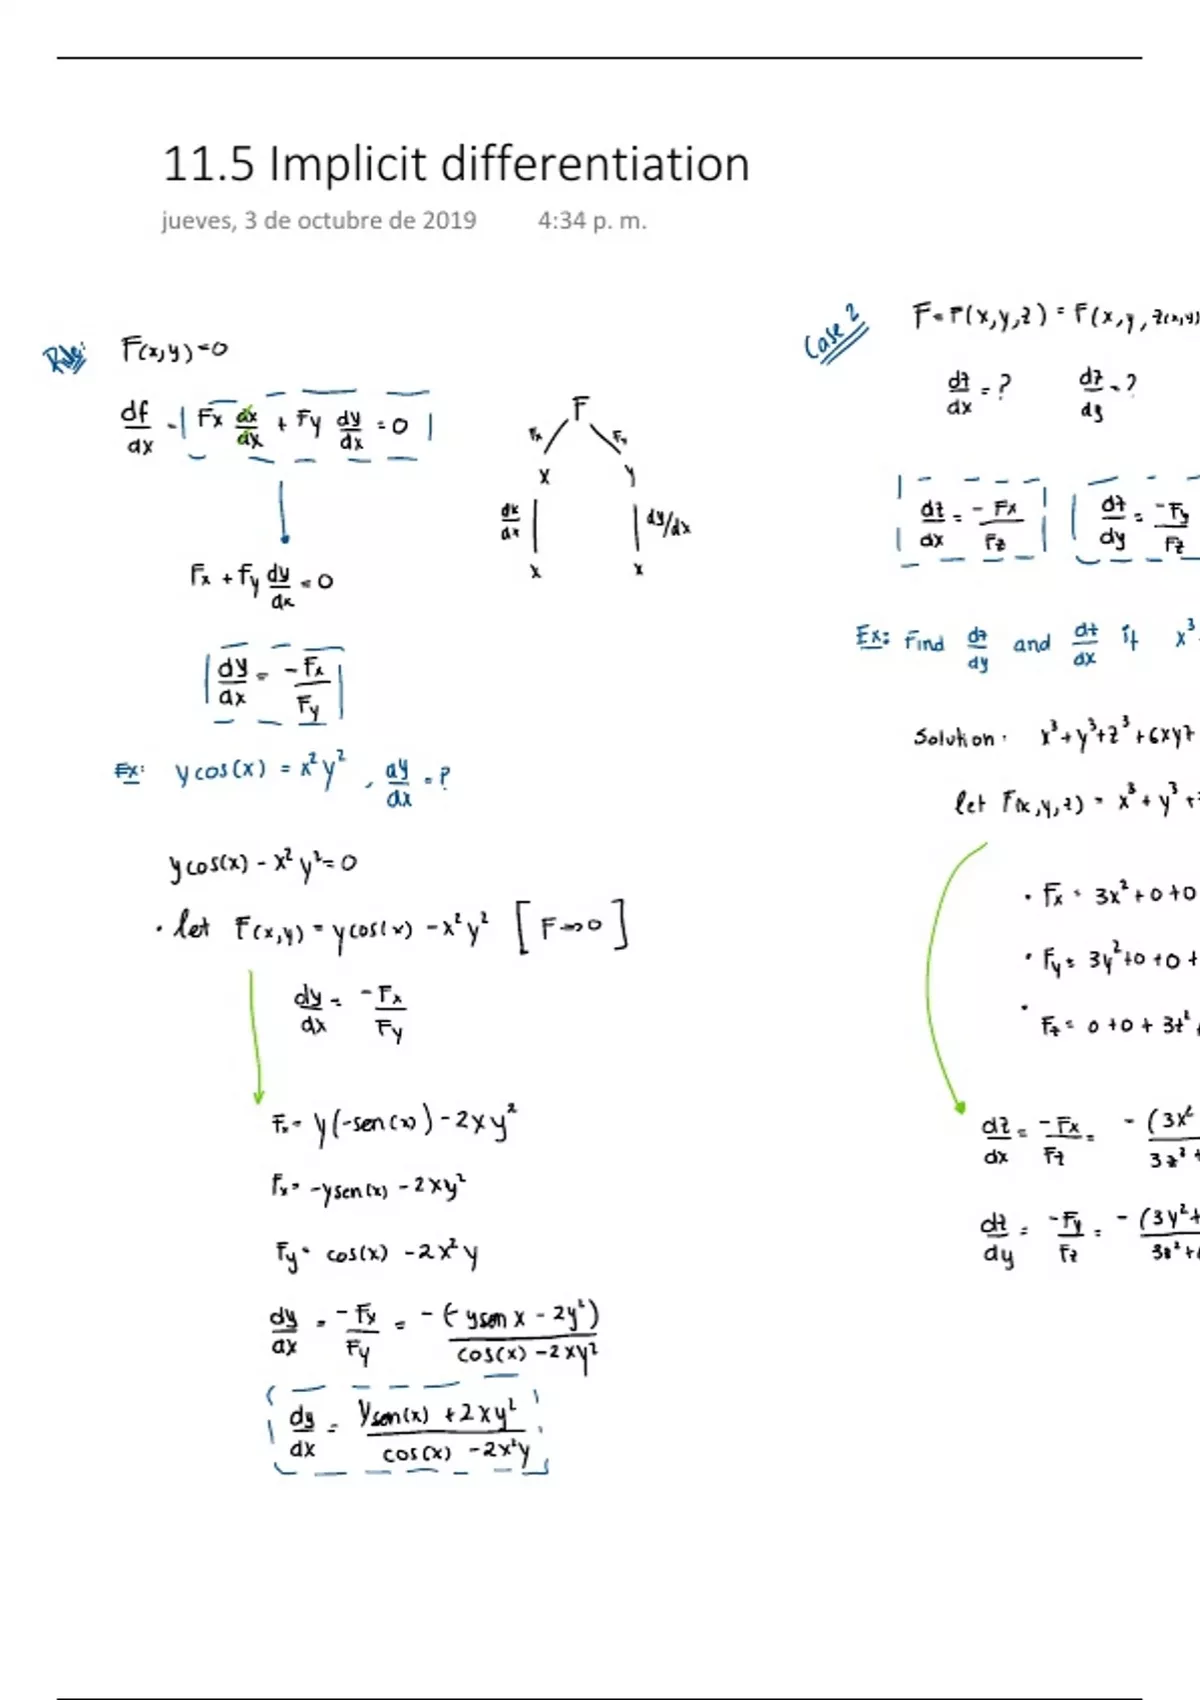 11.5 Implicit differentiation
jueves, 3 de octubre de 2019 4:34 p. m.
Rule: F(x,y)=0
df/dx = Fx dx/dx + Fy dy/dx = 0
Fx + Fy dy/dx = 0
dy/dx = -Fx/Fy
F
Fx Fy
x y
dx/dx dy/dx
x x
Ex: y cos(x) = x²y² , dy/dx = ?
y cos(x) - x²y² = 0
· let F(x,y) = y cos(x) - x²y² [F=>0]
dy/dx = -Fx/Fy
Fx = y(-sen(x)) - 2xy²
Fx = -y sen(x) - 2xy²
Fy = cos(x) - 2x²y
dy/dx = -Fx/Fy = -(-y sen x - 2y²)/cos(x) - 2xy²
dy/dx = y sen(x) + 2xy²/cos(x) - 2x²y
Case 2
F = F(x,y,z) = F(x,y,z(x,y)
dz/dx = ? dz/dy = ?
dz/dx = -Fx/Fz dz/dy = -Fy/Fz
Ex: Find dz/dy and dz/dx if x³
Solution: x³+y³+z³+6xyz
let F(x,y,z) = x³ + y³ +
· Fx = 3x²+0+0
· Fy = 3y²+0+0+
· Fz = 0+0+3z²
dz/dx = -Fx/Fz = -(3x²/3z²+
dz/dy = -Fy/Fz = -(3y²+/3z²+